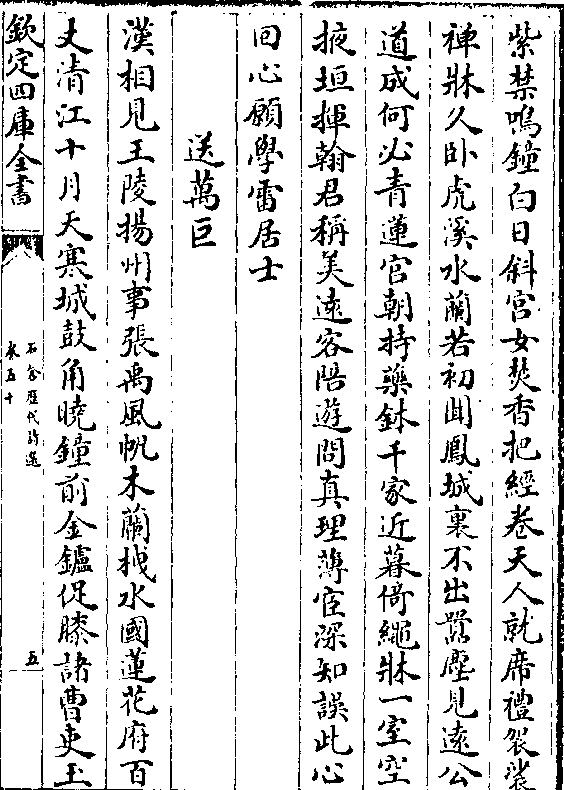 紫禁鳴鐘白日斜宫女焚香把經卷天人就席禮袈裟
禅牀久卧虎溪水蘭若初聞鳳城裏不出嚣塵見遠公
道成何必青蓮宫朝持藥鉢千家近暮倚繩牀一室空
掖垣揮翰君稱美遠客陪遊問真理薄宦深知誤此心
回心願學雷居士
送萬巨
漢相見王陵揚州事張禹風帆木蘭栧水國蓮花府百
丈清江十月天寒城鼓角曉鐘前金鑪促膝諸曹吏玉
欽定四庫全書
石倉歴代詩選
卷五十
五